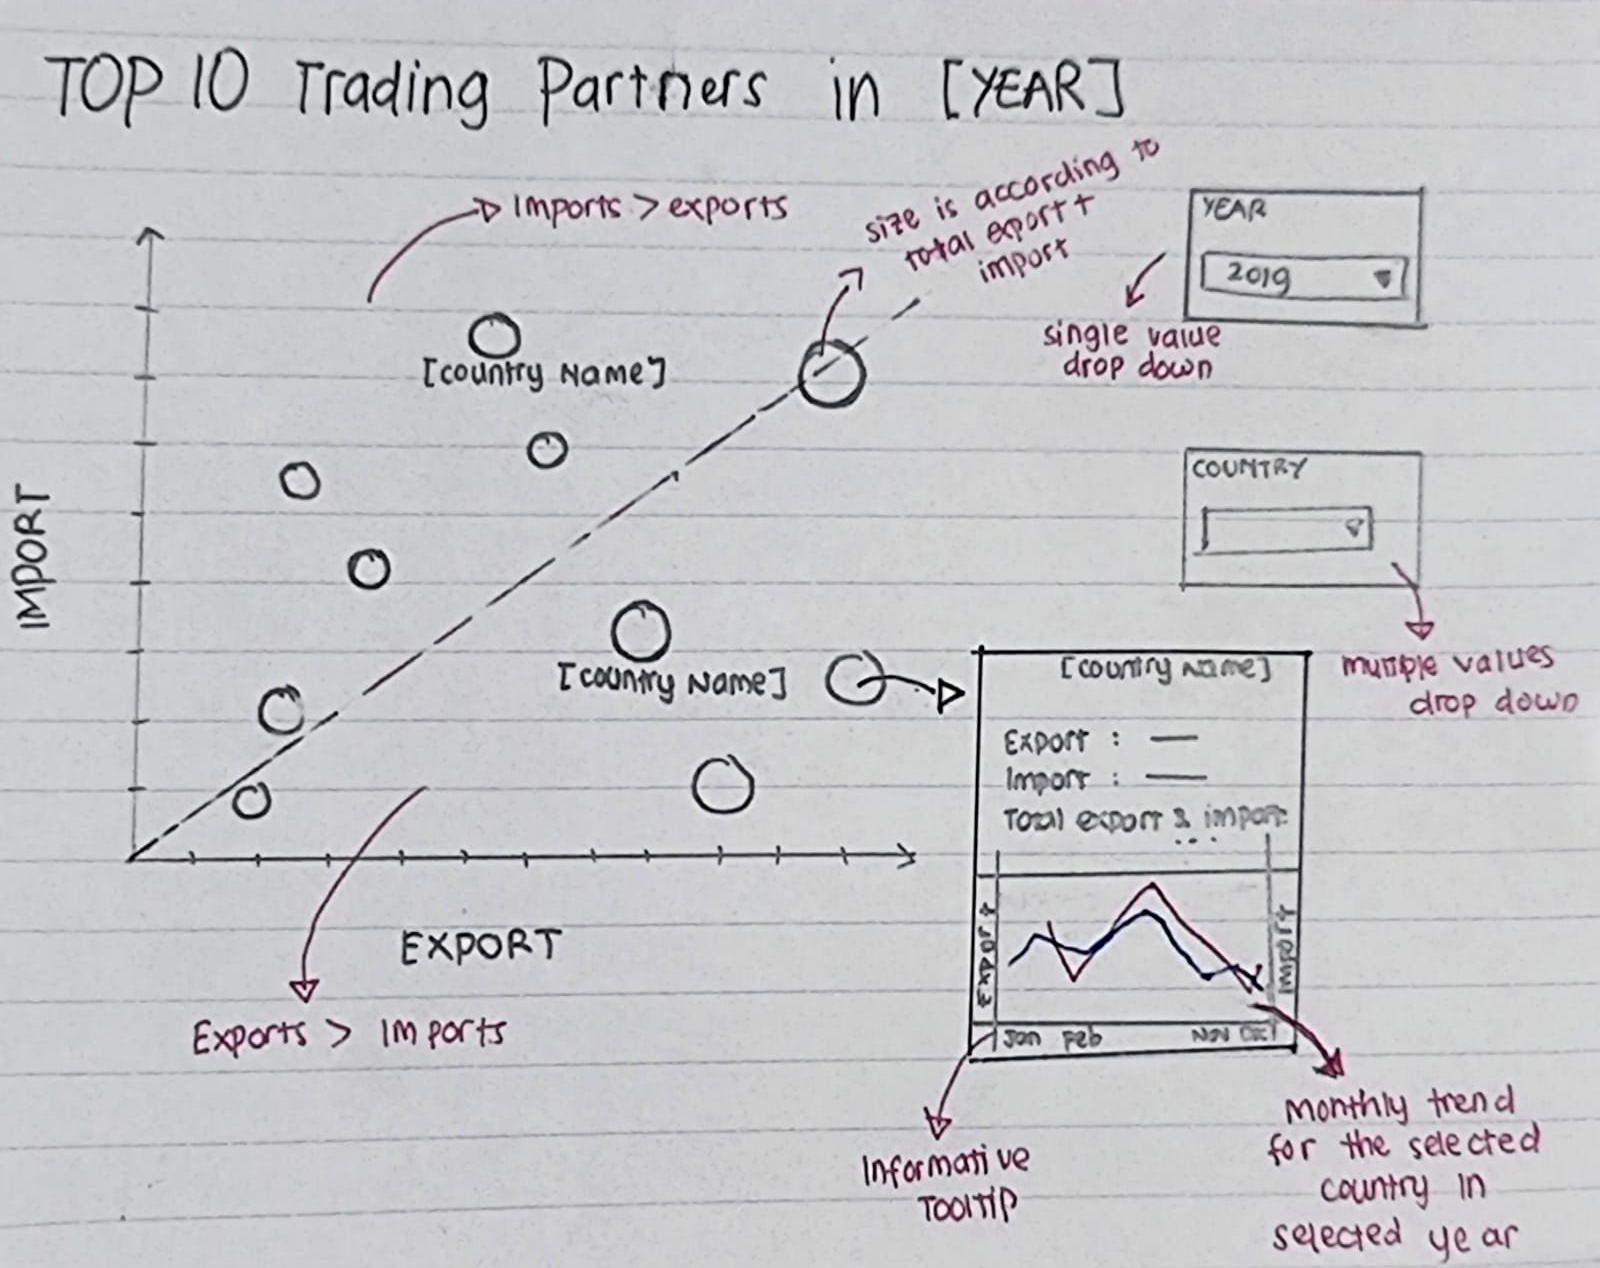 TOP 10 Trading Partners in [YEAR]
Imports > exports
size is according to
total export +
import
YEAR
2019
single value
drop down
[country Name]
COUNTRY
multiple values
drop down
IMPORT
[country Name]
EXPORT
Exports > Imports
[country Name]
Export : —
Import : —
Total export & import:
...
EXPORT
IMPORT
Jan Feb Nov Dec
Informative
Tooltip
Monthly trend
for the selected
country in
selected year